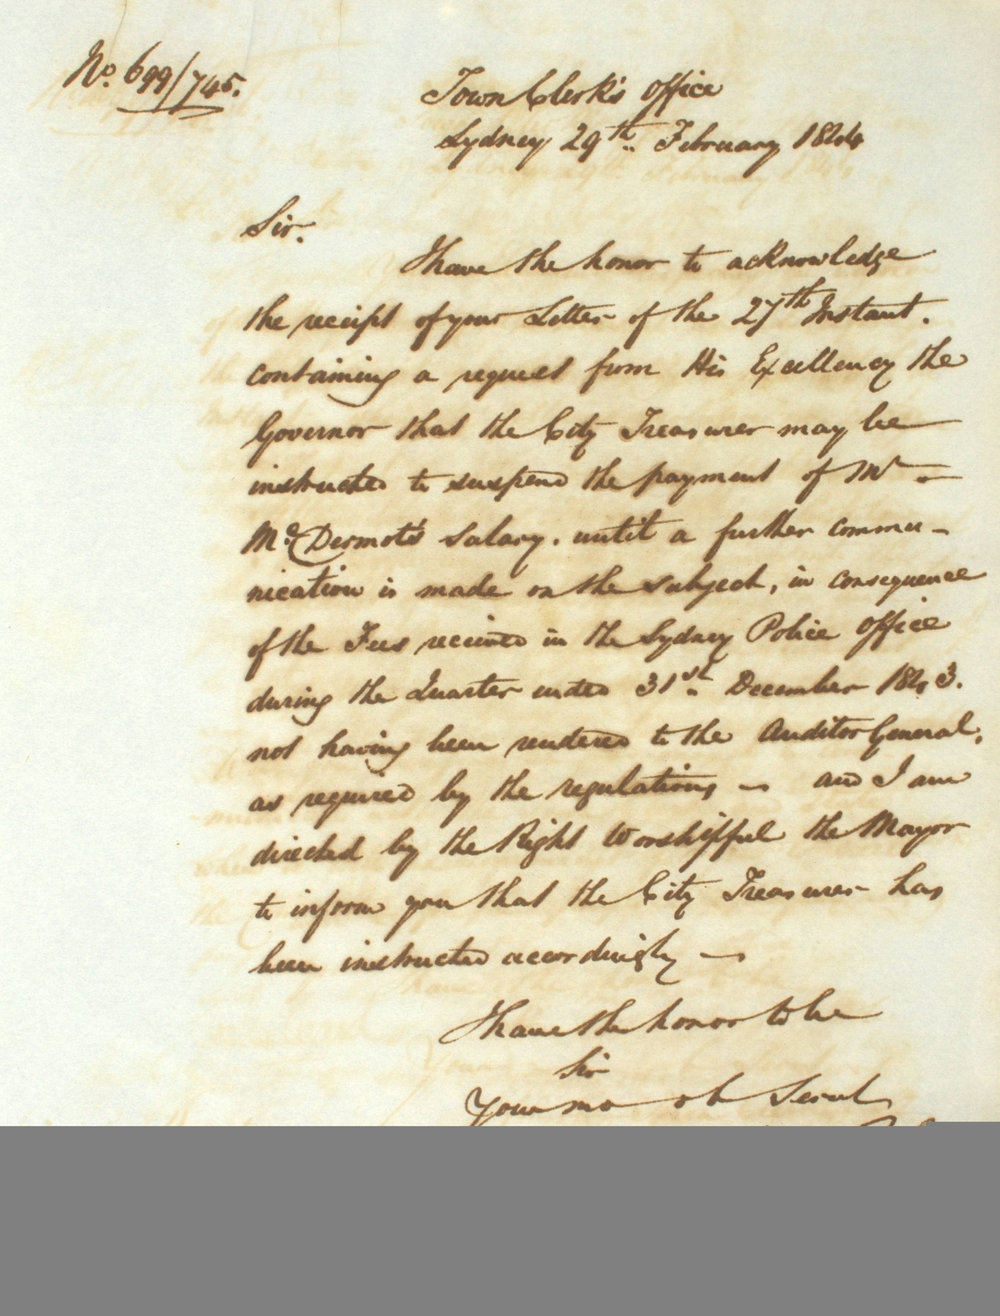 No. 699/745.
Town Clerk's Office
Sydney 29th February 1844
Sir.
I have the honor to acknowledge
the receipt of your Letter of the 27th Instant.
containing a request from His Excellency the
Governor that the City Treasurer may be
instructed to suspend the payment of Mr
McDermott's Salary. until a further commu-
nication is made on the subject, in consequence
of the Fees received in the Sydney Police Office
during the Quarter ended 31st. December 1843.
not having been rendered to the Auditor General,
as required by the regulations — and I am
directed by the Right Worshipful the Mayor
to inform you that the City Treasurer has
been instructed accordingly —
I have the honor to be
Sir
Your mo ob Servt